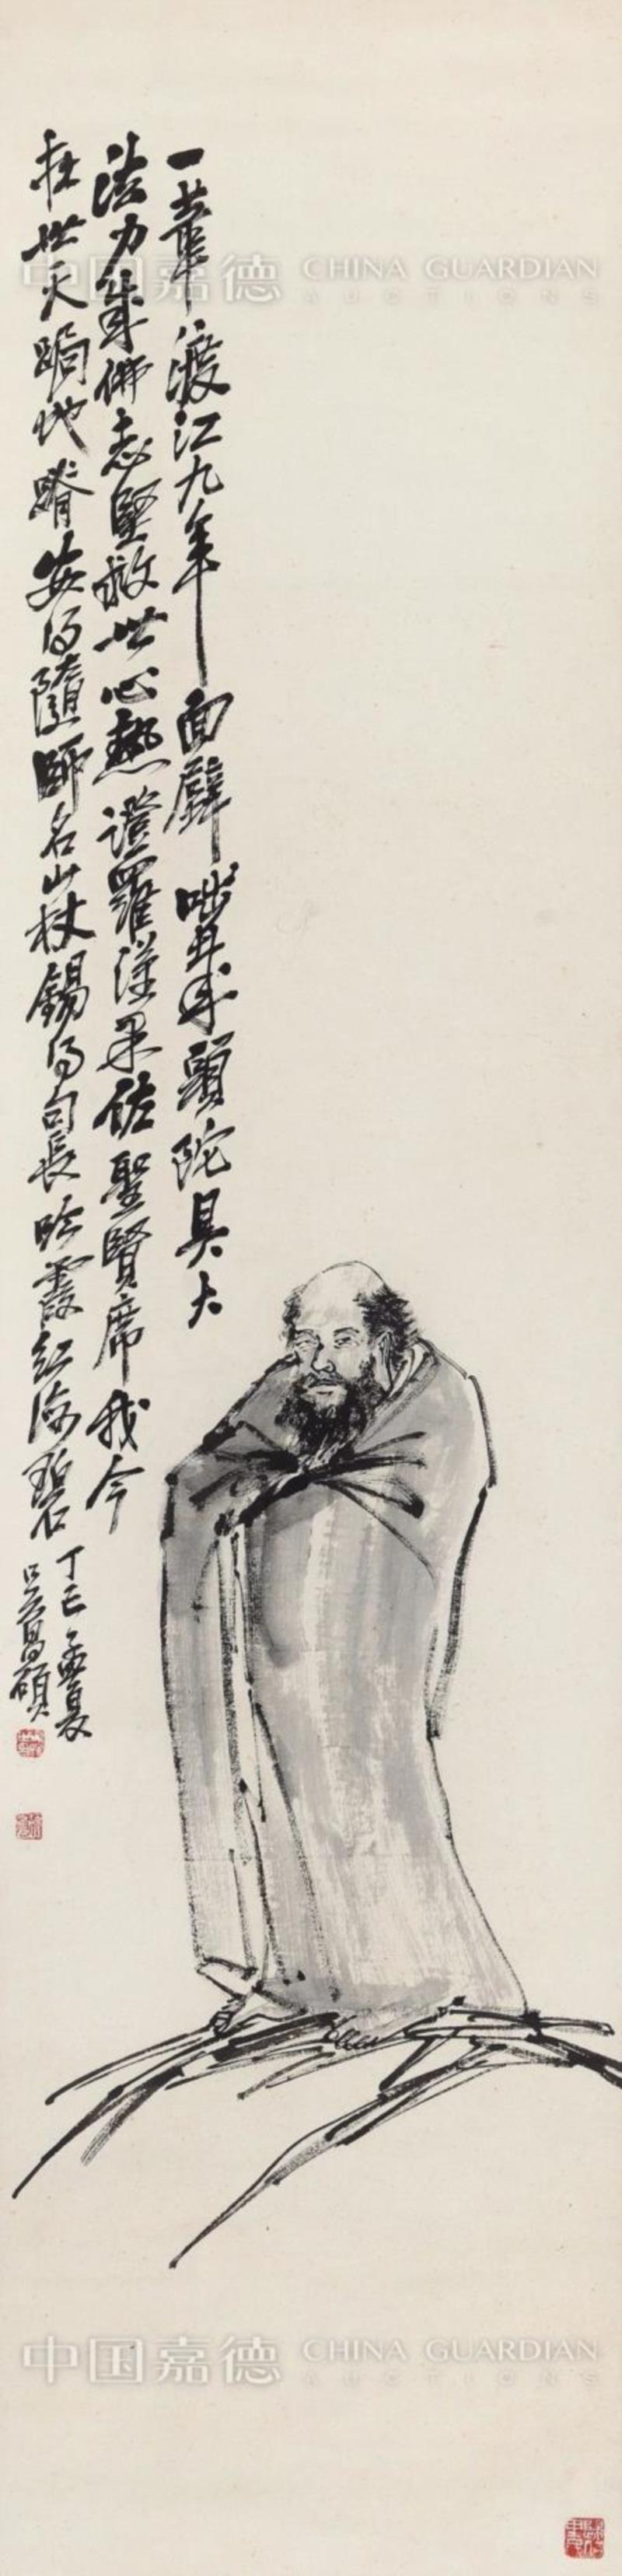 一葦渡江九年面壁咄哉頭陀具大
法力成佛志堅救世心熱證羅漢果佐聖賢席我今
在世天跼地蹐安得隨師名山杖錫得句長吟霞紅海碧
丁巳孟夏
吳昌碩
中国嘉德 CHINA GUARDIAN
AUCTIONS
中国嘉德 CHINA GUARDIAN
AUCTIONS